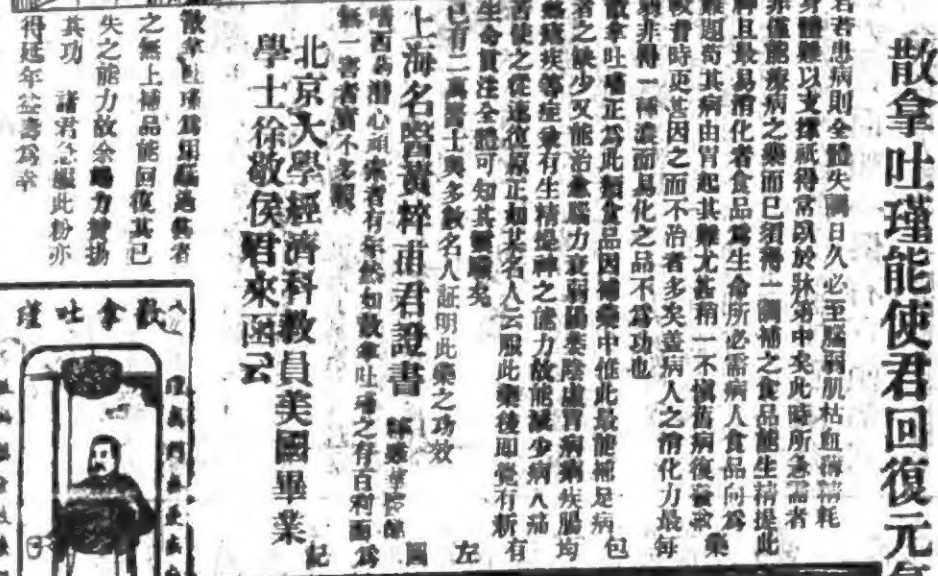 散拿吐瑾能使君回復元
若君患病則全體失調日久必至腦弱肌枯血薄精耗
身體難以支撐祇得常臥於牀第中矣此時所急需者
非僅能療病之藥而已須得一調補之食品能生精提
神且最易消化者食品為生命所必需病人食品向為
難題苟其病由胃起其難尤甚稍一不慎舊病復發
較昔時更甚因之而不治者多矣蓋病人之消化力最
弱非得一種濃而易化之品不為功也
散拿吐瑾正為此類食品因補藥中惟此最能補足病
者之缺少又能治愈腦力衰弱陽萎陰虛胃病癆疾腸
癰瘧疾等症並有生精提神之能力故能減少病人痛
苦使之從速復原正如某名人云服此藥後即覺有新
生命貫注全體可知其靈驗矣
已有二萬醫士與多數名人証明此藥之功效
此藥每包均有左圖為記
上海名醫黃粹甫君證書
嗜西藥潛心研求者有年然如散拿吐瑾之有百利而
無一害者實不多覯
北京大學經濟科教員美國畢業
學士徐敬侯君來函云
散拿吐瑾為用腦過傷者
之無上補品能回復其已
失之能力故余竭力贊揚
其功 諸君急服此粉亦
得延年益壽為幸
散拿吐瑾